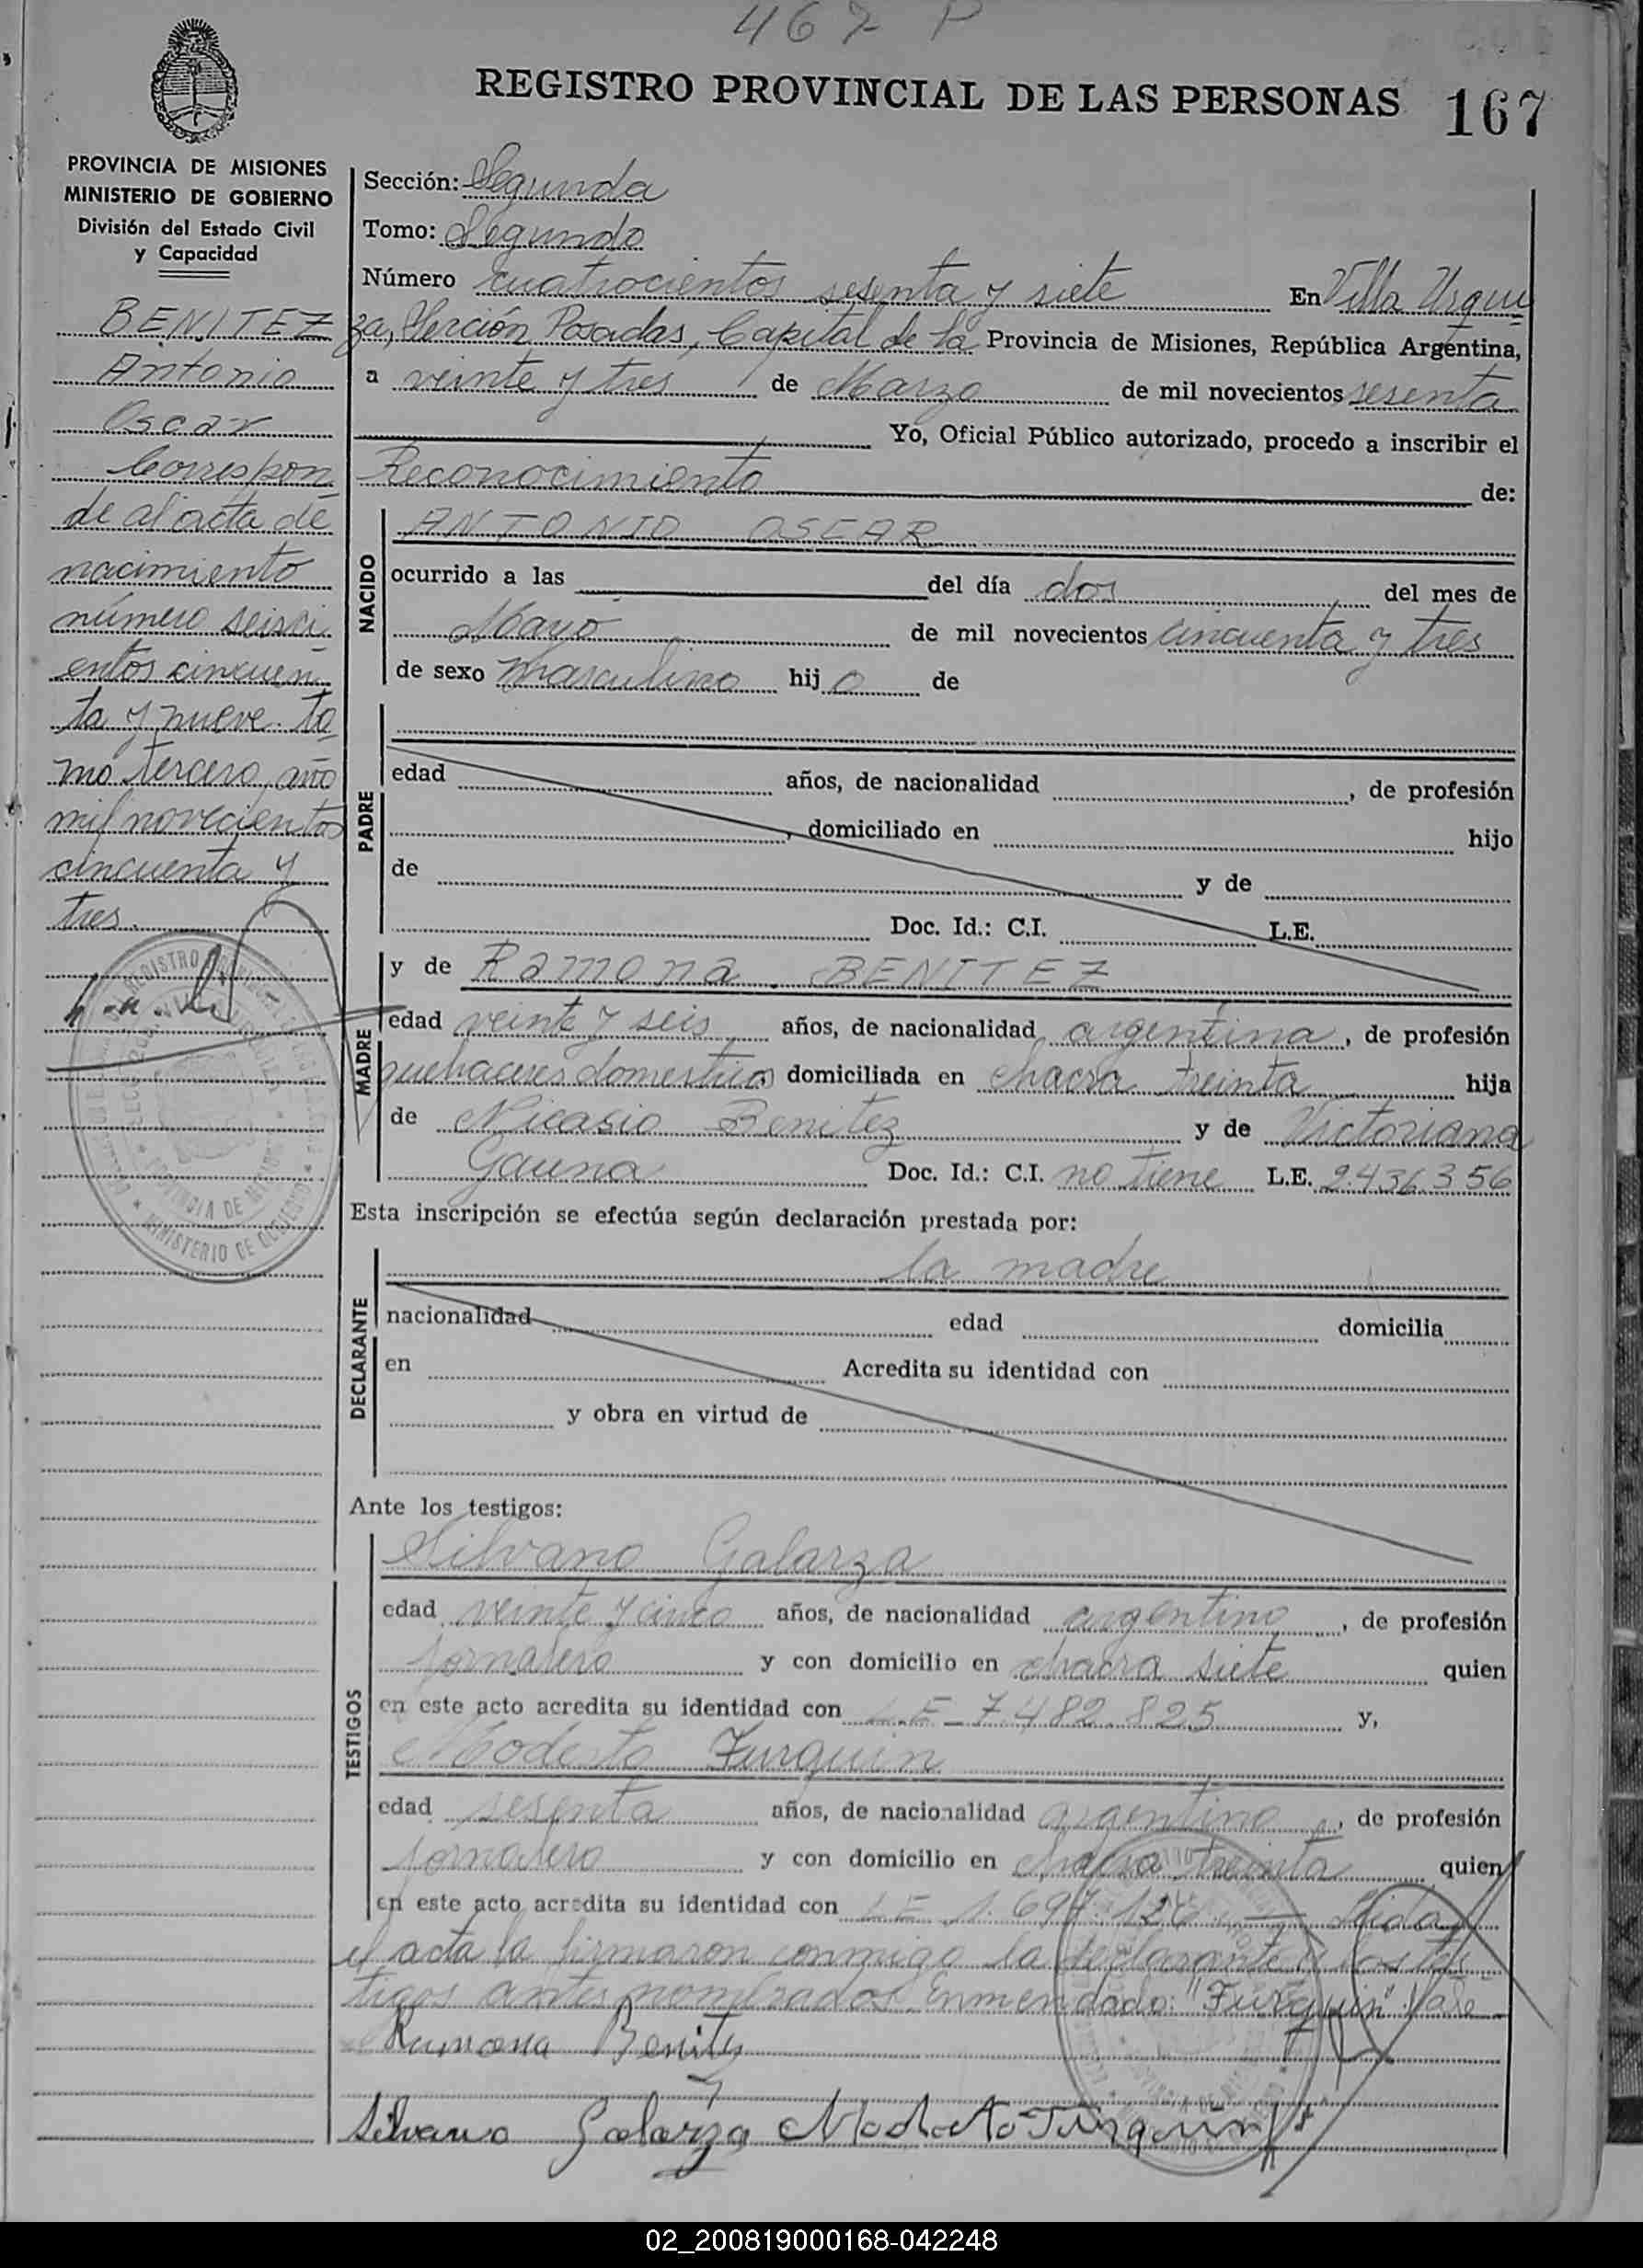 467 P
REGISTRO PROVINCIAL DE LAS PERSONAS 167
PROVINCIA DE MISIONES
MINISTERIO DE GOBIERNO
División del Estado Civil
y Capacidad
BENITEZ
Antonio
Oscar
Correspon
de al acta de
nacimiento
número seisci
entos cincuen
ta y nueve to
mo tercero, año
mil novecientos
cincuenta y
tres.
Sección: Segunda
Tomo: Segundo
Número cuatrocientos sesenta y siete En Villa Urqui
za, Sección Posadas, Capital de la Provincia de Misiones, República Argentina,
a veinte y tres de Marzo de mil novecientos sesenta
Yo, Oficial Público autorizado, procedo a inscribir el
Reconocimiento de:
NACIDO
ANTONIO OSCAR
ocurrido a las del día dos del mes de
Mayo de mil novecientos cincuenta y tres
de sexo masculino hijo de
PADRE
edad años, de nacionalidad , de profesión
, domiciliado en hijo
de y de
Doc. Id.: C.I. L.E.
MADRE
y de Ramona BENITEZ
edad veinte y seis años, de nacionalidad argentina, de profesión
quehaceres domesticos domiciliada en chacra treinta hija
de Nicasio Benitez y de Victoriana
Gauna Doc. Id.: C.I. no tiene L.E. 2.436.356
Esta inscripción se efectúa según declaración prestada por:
DECLARANTE
la madre
nacionalidad edad domicilia
en Acredita su identidad con
y obra en virtud de
Ante los testigos:
TESTIGOS
Silvano Galarza
edad veinte y cinco años, de nacionalidad argentino, de profesión
jornalero y con domicilio en chacra siete quien
en este acto acredita su identidad con L.E-7.482.825 y,
Modesto Furquin
edad sesenta años, de nacionalidad argentino, de profesión
jornalero y con domicilio en chacra treinta quien
en este acto acredita su identidad con LE 1.697. Leida
el acta la firmaron conmigo la declarante y los tes
tigos antes nombrados. Enmendado: "Furquin" Vale
Ramona Benitez
Silvano Galarza Modesto Furquin
02_200819000168-042248